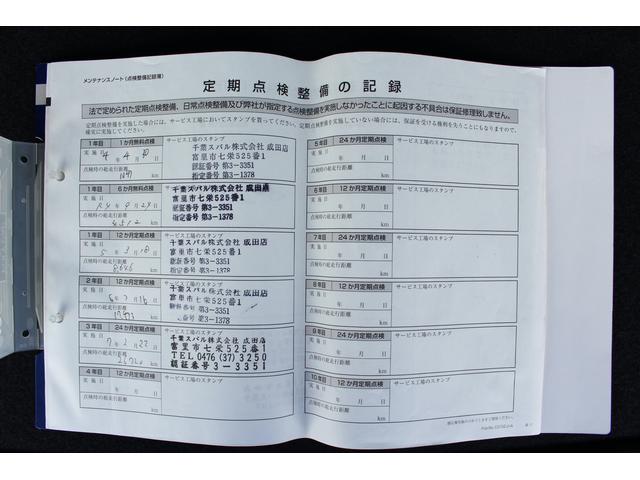 メンテナンスノート（点検整備記録簿）
定期点検整備の記録
法で定められた定期点検整備、日常点検整備及び弊社が指定する点検整備を実施しなかったことに起因する不具合は保証修理致しません。
定期点検整備を実施した場合には、サービス工場においてスタンプを貰ってください。定期点検整備を実施していない場合には、保証を受ける権利を失うことにもなりますので、
確実に実施してください。
1年目 1か月無料点検 サービス工場のスタンプ
実施日
4年4月 日
点検時の総走行距離
km
千葉スバル株式会社 成田店
富里市七栄525番1
認証番号 第3-3351
指定番号 第3-1378
1年目 6か月無料点検
実施日
R4年9月29日
点検時の総走行距離
4512 km
千葉スバル株式会社 成田店
富里市七栄525番1
認証番号 第3-3351
指定番号 第3-1378
1年目 12か月定期点検 サービス工場のスタンプ
実施日
5年3月18日
点検時の総走行距離
km
千葉スバル株式会社 成田店
富里市七栄525番1
認証番号 第3-3351
指定番号 第3-1378
2年目 12か月定期点検 サービス工場のスタンプ
実施日
6年3月16日
点検時の総走行距離
km
千葉スバル株式会社 成田店
富里市七栄525番1
認証番号 第3-3351
指定番号 第3-1378
3年目 24か月定期点検 サービス工場のスタンプ
実施日
7年2月22日
点検時の総走行距離
km
千葉スバル株式会社 成田店
富里市七栄525番1
TEL 0476 (37) 3250
認証番号 3-3351
4年目 12か月定期点検 サービス工場のスタンプ
実施日
年 月 日
点検時の総走行距離
km
5年目 24か月定期点検 サービス工場のスタンプ
実施日
年 月 日
点検時の総走行距離
km
6年目 12か月定期点検 サービス工場のスタンプ
実施日
年 月 日
点検時の総走行距離
km
7年目 24か月定期点検 サービス工場のスタンプ
実施日
年 月 日
点検時の総走行距離
km
8年目 12か月定期点検 サービス工場のスタンプ
実施日
年 月 日
点検時の総走行距離
km
9年目 24か月定期点検 サービス工場のスタンプ
実施日
年 月 日
点検時の総走行距離
km
10年目 12か月定期点検 サービス工場のスタンプ
実施日
年 月 日
点検時の総走行距離
km